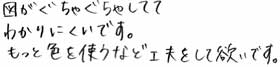 図がぐちゃぐちゃしてて
わかりにくいです。
もっと色を使うなど工夫をして欲しいです。